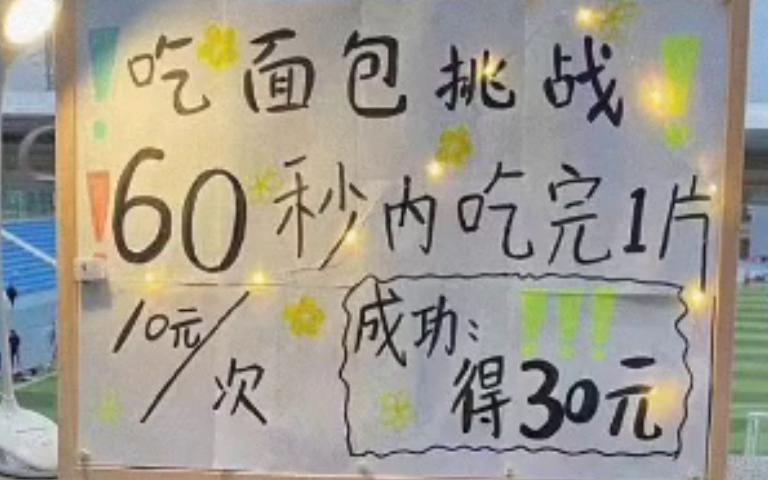 吃面包挑战!
!60秒内吃完1片
10元/次
成功:!!!
得30元